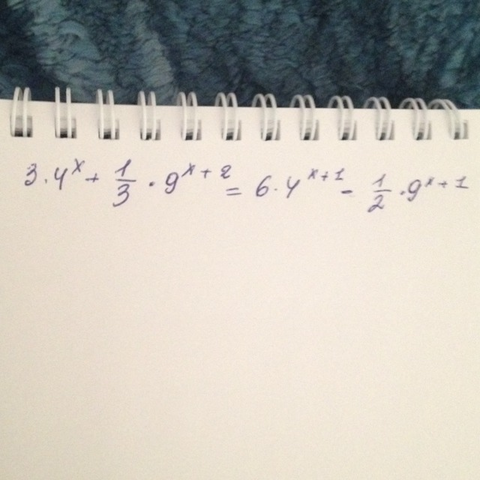 3·4^x + 1/3 · 9^x+2 = 6·4^x+1 - 1/2 · 9^x+1